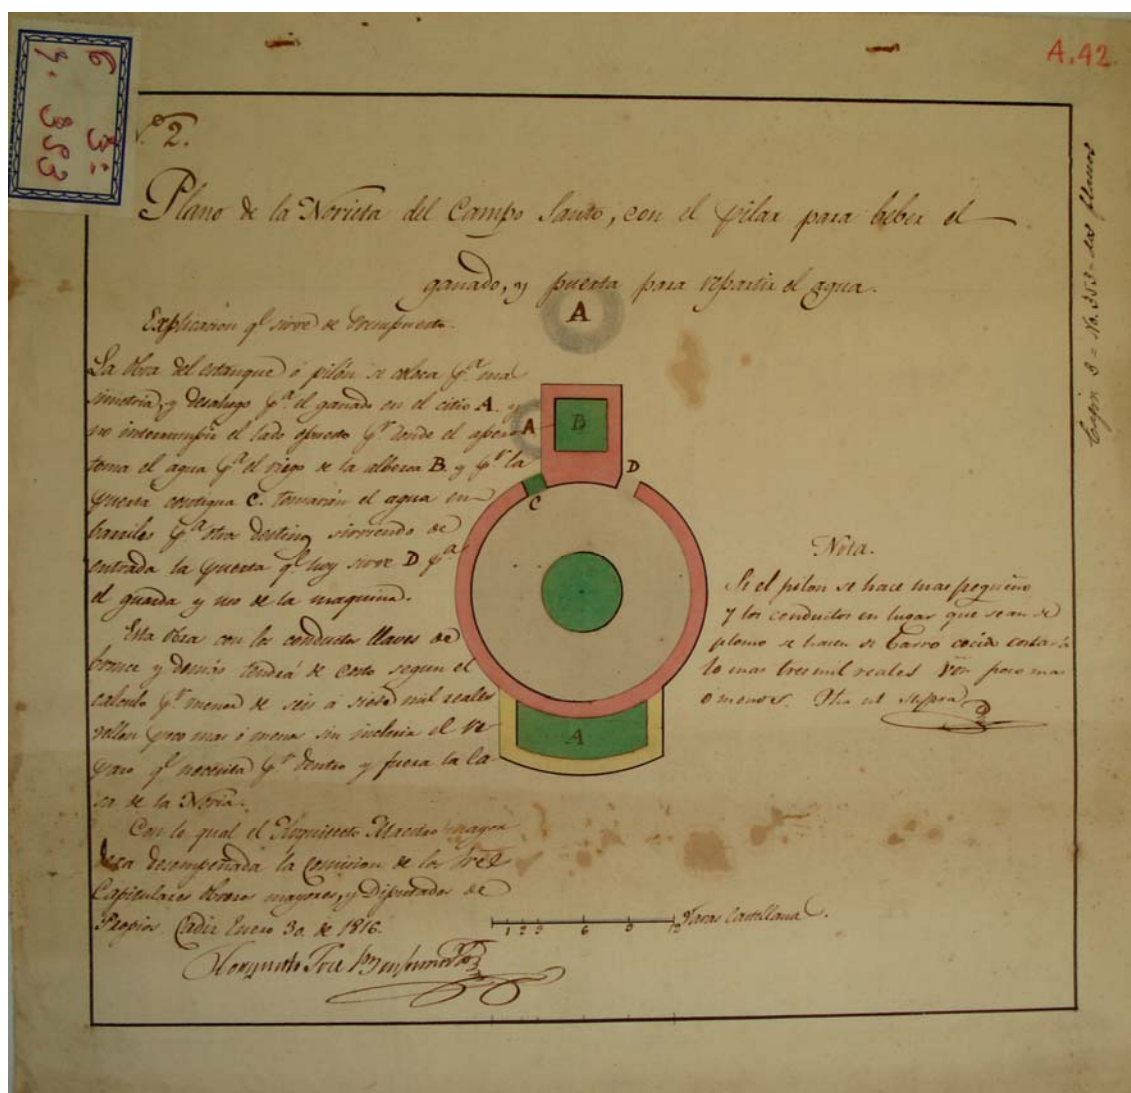 A.42
6 3=
9. 353
N.º 2.
Plano de la Norieta del Campo Santo, con el pilar para beber el
ganado, y puerta para repartir el agua.
Explicacion q.e sirve de Presupuesto.
La Obra del estanque ó pilón se coloca p.r mas
simetria, y desahogo p.a el ganado en el citio A. y
no interrumpir el lado opuesto p.r donde el apero
toma el agua p.a el riego de la alberca B. y p.r la
puerta contigua C. tomarán el agua en
barriles p.a otros destinos sirviendo de
entrada la puerta q.e hoy sirve D. p.a
el guarda y uso de la maquina.
Esta obra con los conductos llaves de
bronce y demás tendrá de costo segun el
calculo p.r menor de seis á siete mil reales
vellon poco mas ó menos sin incluir el re
paro q.e necesita p.r dentro y fuera la Ca
sa de la Noria.
Con lo qual el Arquitecto Maestro mayor
dexa desempeñada la Comision de los Sres
Capitulares Obreros mayores, y Diputados de
Propios. Cadiz Enero 30 de 1816.
A
A
B
C
D
A
Nota.
Si el pilon se hace mas pequeño
y los conductos en lugar que sean de
plomo se hacen de barro cocido costará
lo mas tres mil reales von poco mas
o menos. Fha ut supra
1 2 3 6 9 12 Varas Castellanas.
Cajon 3= No. 353= dos planos